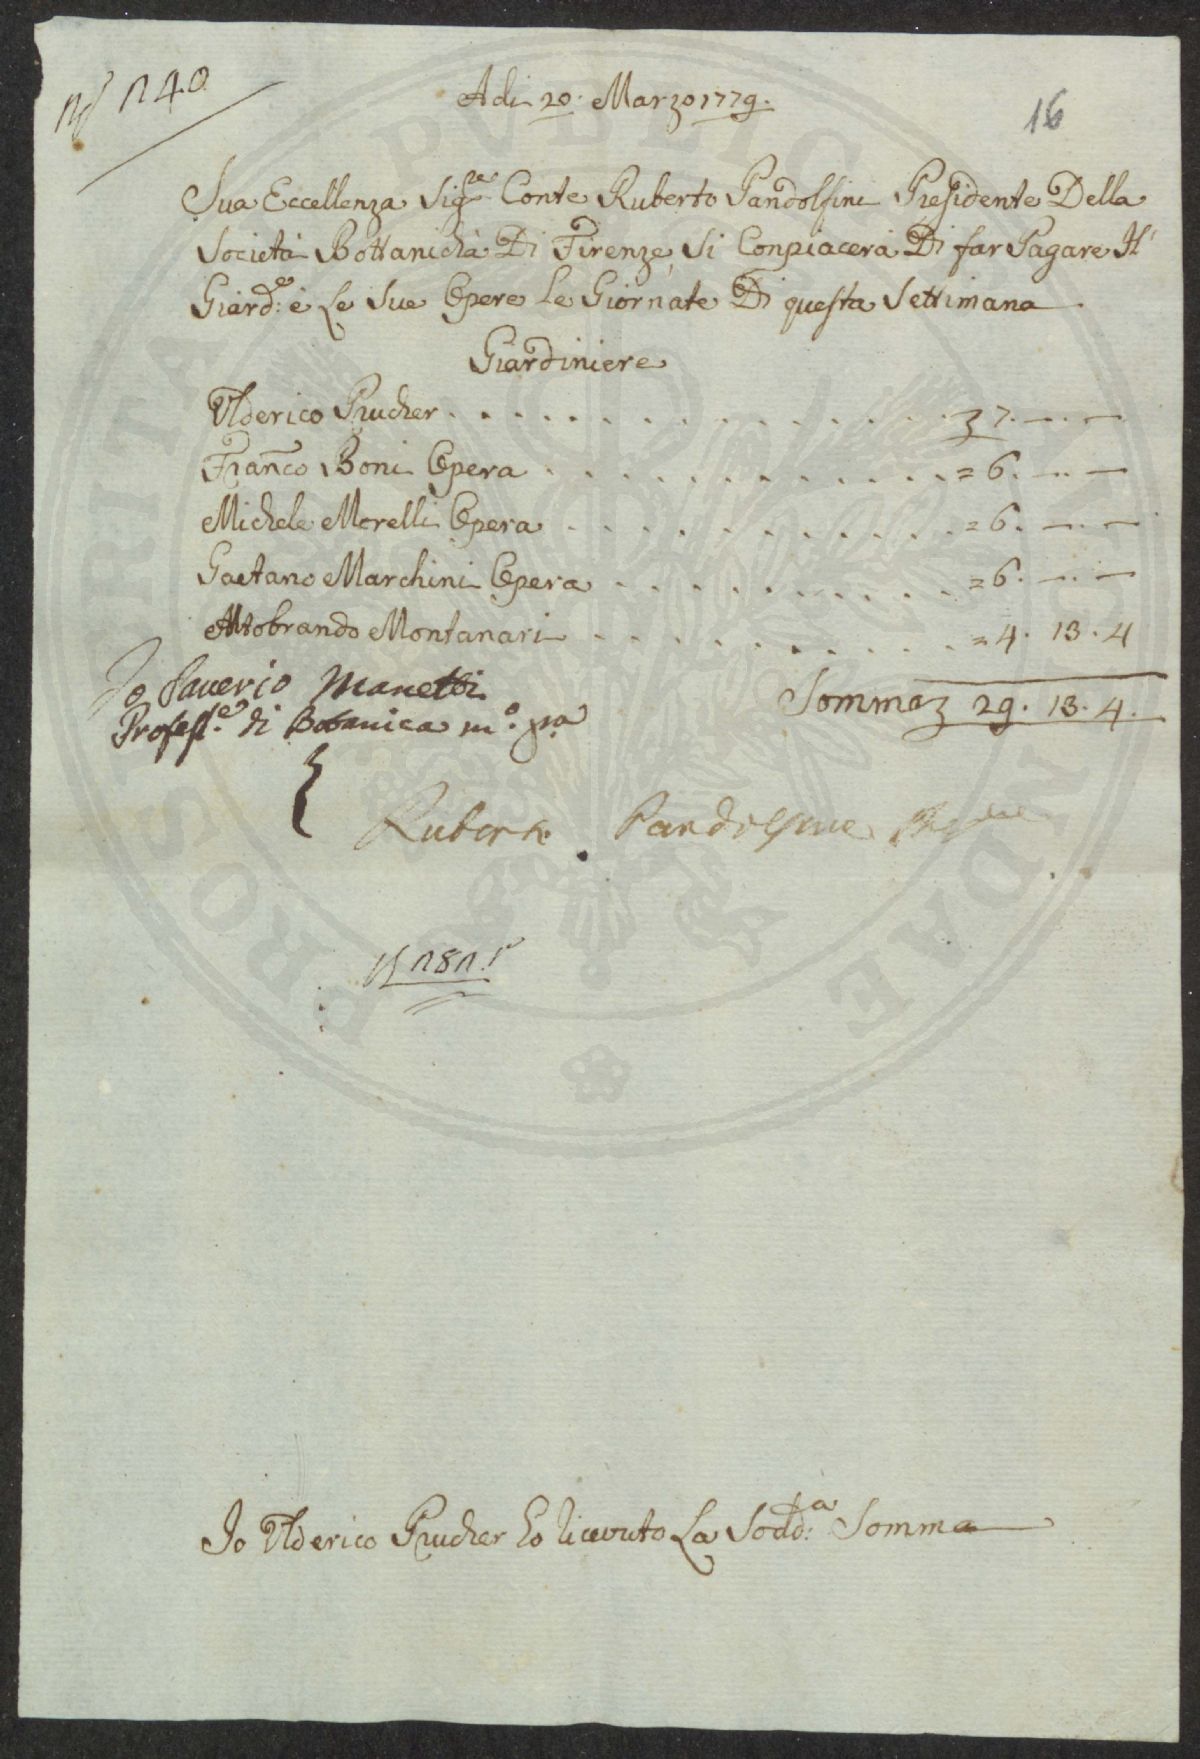 N° 240
16
Adi 20. Marzo 1779.
Sua Eccellenza Sig.re Conte Ruberto Pandolfini Presidente Della
Società Bottanicha Di Firenze, si Conpiacerà Di far Pagare Il
Giard.e: e Le Sue Opere Le Giornate Di questa Settimana
Giardiniere
Ulderico Prucher . . . . . . . . . . . . . . . . 7. —. —
Franco Boni Opera . . . . . . . . . . . . = 6. —. —
Michele Morelli Opera . . . . . . . . . . . = 6. —. —
Gaetano Marchini Opera . . . . . . . . . . . = 6. —. —
Altobrando Montanari . . . . . . . . . . . = 4. 13. 4
Somma 29. 13. 4.
Io Saverio Manetti
Profess.e di Botanica m.o p.a
Ruberto Pandolfini
Io Ulderico Prucher ho ricevuto La Sodd.a: Somma
PROSPERITATI PUBLICAE AUGENDAE